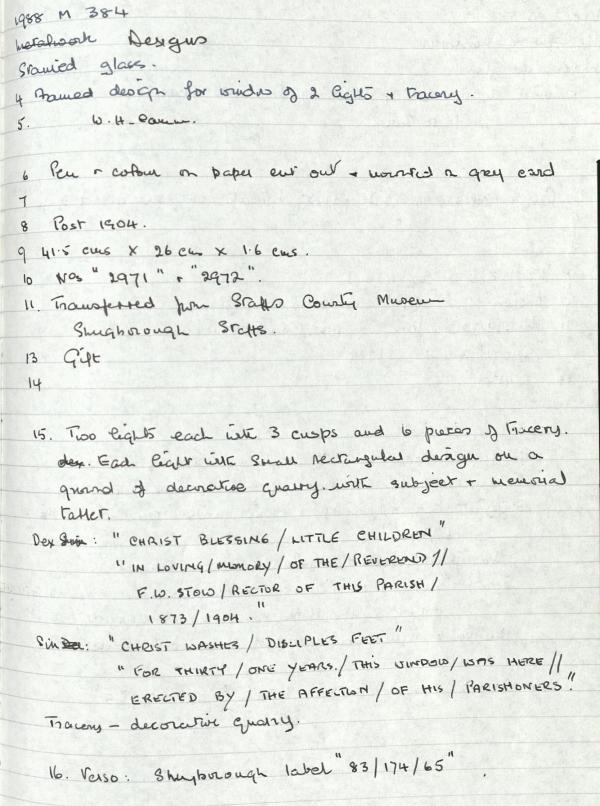 1988 M 384
Metalwork Designs
Stained glass.
4 Framed design for window of 2 lights + tracery.
5. W.H.
6 Pen + colour on paper cut out + mounted on grey card
7
8 Post 1904.
9 41.5 cms X 26 cms X 1.6 cms.
10 Nos "2971" + "2972".
11. Transferred from Staffs County Museum
Shugborough Staffs.
13 Gift
14
15. Two lights each with 3 cusps and 6 pieces of tracery.
dex. Each light with small rectangular design on a
ground of decorative quarry. with subject + memorial
tablet.
Dex Sin: "CHRIST BLESSING / LITTLE CHILDREN"
"IN LOVING / MEMORY / OF THE / REVEREND //
F.W. STOW / RECTOR OF THIS PARISH /
1873 / 1904."
Sin Dex: "CHRIST WASHES / DISCIPLES FEET"
"FOR THIRTY / ONE YEARS. / THIS WINDOW / WAS HERE //
ERECTED BY / THE AFFECTION / OF HIS / PARISHONERS."
Tracery – decorative quarry.
16. Verso: Shugborough label "83/174/65".